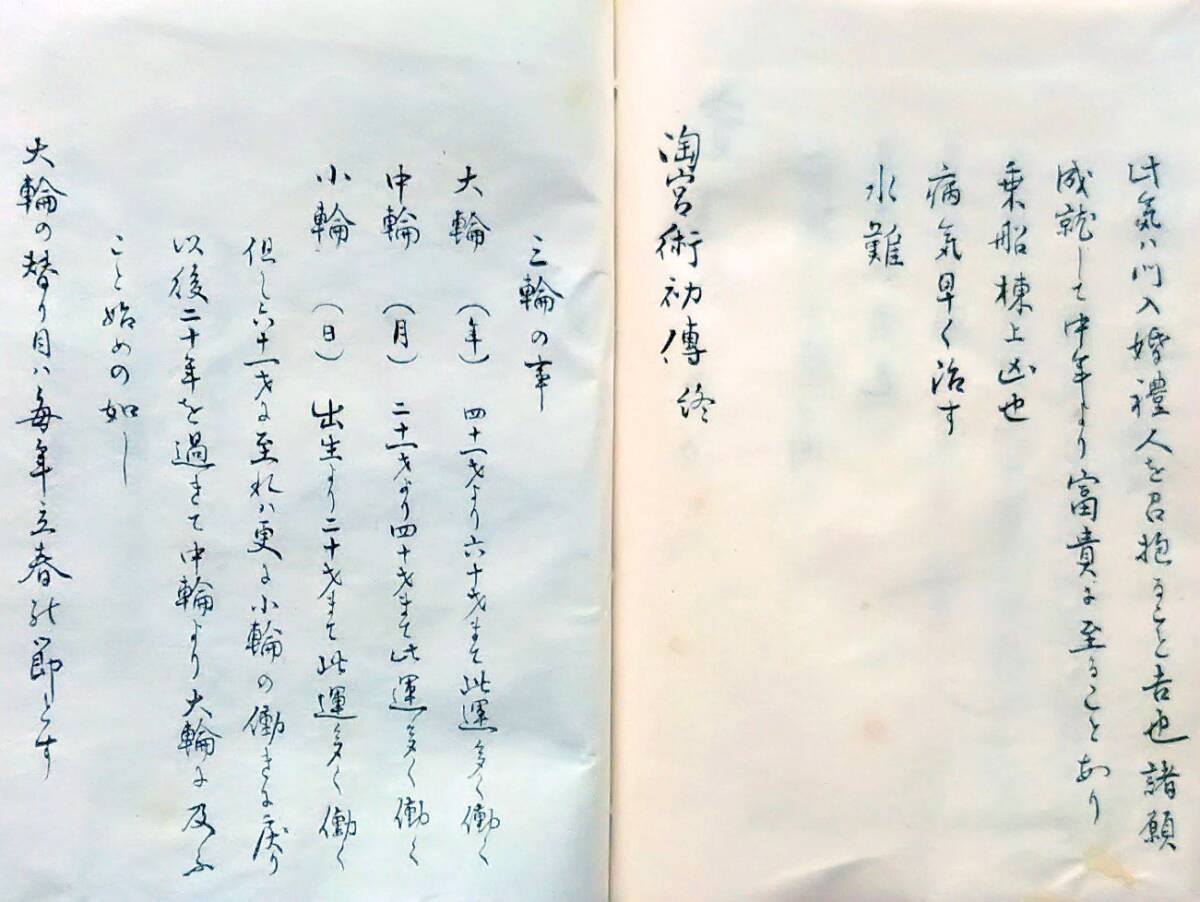 此気ハ門入婚禮人を召抱ること吉也諸願
成就して中年より富貴に至ることあり
乗船棟上凶也
病気早く治す
水難
淘宮術初傳終
三輪の事
大輪（年）四十一才より六十才まて此運多く働く
中輪（月）二十一才より四十才まて此運多く働く
小輪（日）出生より二十才まて此運多く働く
但し六十一才に至れハ更に小輪の働きに戻り
以後二十年を過きて中輪より大輪に及ふ
こと始めの如し
大輪の替り目ハ毎年立春の節とす